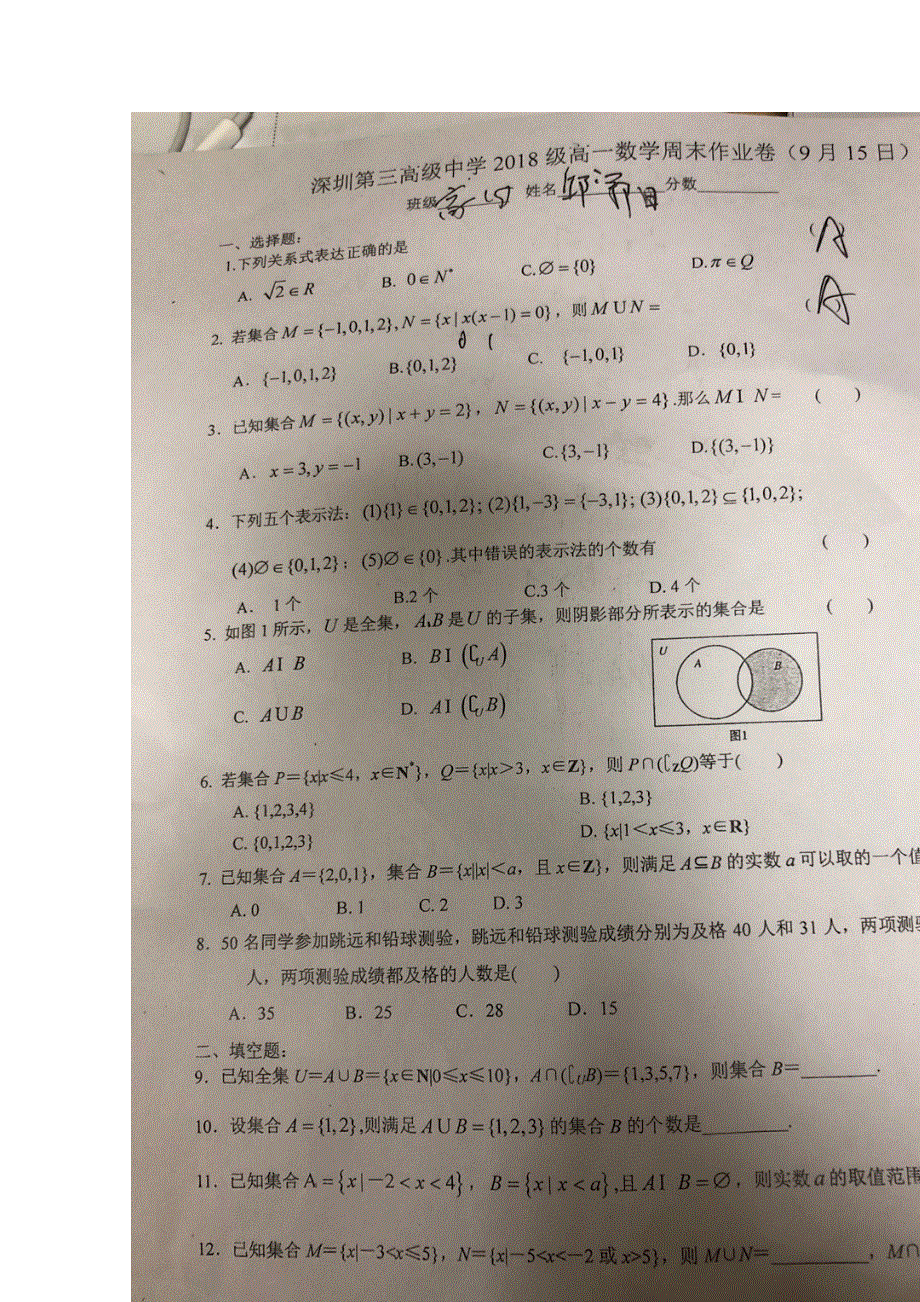 深圳第三高级中学2018级高一数学周末作业卷（9月15日）
班级 高一 姓名 分数
一、选择题：
1.下列关系式表达正确的是 (A)
A. √2∈R B. 0∈N* C.∅={0} D.π∈Q
2. 若集合M={-1,0,1,2},N={x|x(x-1)=0}，则M∪N= (A)
0 1
A. {-1,0,1,2} B.{0,1,2} C. {-1,0,1} D. {0,1}
3. 已知集合M={(x,y)|x+y=2}，N={(x,y)|x-y=4}.那么M I N= ( )
A. x=3,y=-1 B.(3,-1) C.{3,-1} D.{(3,-1)}
4. 下列五个表示法：(1){1}∈{0,1,2}; (2){1,-3}={-3,1}; (3){0,1,2}⊆{1,0,2};
(4)∅∈{0,1,2}；(5)∅∈{0}.其中错误的表示法的个数有 ( )
A. 1个 B.2个 C.3个 D. 4个
5. 如图1所示，U是全集，A、B是U的子集，则阴影部分所表示的集合是 ( )
A. A I B B. B I (∁UA)
C. A∪B D. A I (∁UB)
U A B
图1
6. 若集合P={x|x≤4，x∈N*}，Q={x|x>3，x∈Z}，则P∩(∁ZQ)等于( )
A. {1,2,3,4} B. {1,2,3}
C. {0,1,2,3} D. {x|1<x≤3，x∈R}
7. 已知集合A={2,0,1}，集合B={x||x|<a，且x∈Z}，则满足A⊆B的实数a可以取的一个值
A. 0 B. 1 C. 2 D. 3
8. 50名同学参加跳远和铅球测验，跳远和铅球测验成绩分别为及格40人和31人，两项测验
人，两项测验成绩都及格的人数是( )
A. 35 B. 25 C. 28 D. 15
二、填空题：
9. 已知全集U=A∪B={x∈N|0≤x≤10}，A∩(∁UB)={1,3,5,7}，则集合B=________.
10. 设集合A={1,2},则满足A∪B={1,2,3}的集合B的个数是________.
11. 已知集合A={x|-2<x<4}，B={x|x<a},且A I B=∅，则实数a的取值范围
12. 已知集合M={x|-3<x≤5}，N={x|-5<x<-2或x>5}，则M∪N=________，M∩